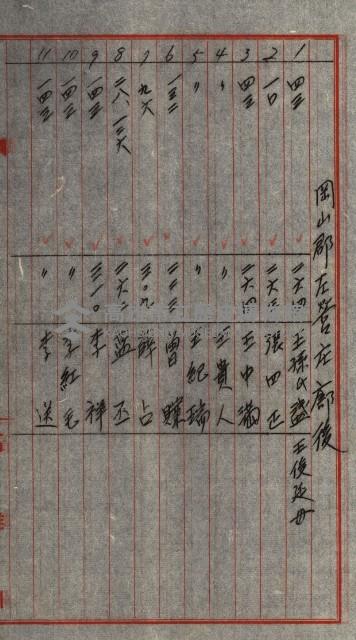 岡山郡左營庄廍後
1 四三 二六四 王孫氏盛 王俊廷母
2 一〇 二六二 張四正
3 四三 二六四 王中滿
4 〃 〃 王貴人
5 〃 〃 王紀瑞
6 一三二 二三三 曾賺
7 九六 三〇九 薛占
8 二八、一三六 二六二 藍丕
9 一四三 三一〇 李祥
10 一四三 〃 李紅毛
11 一四三 〃 李送